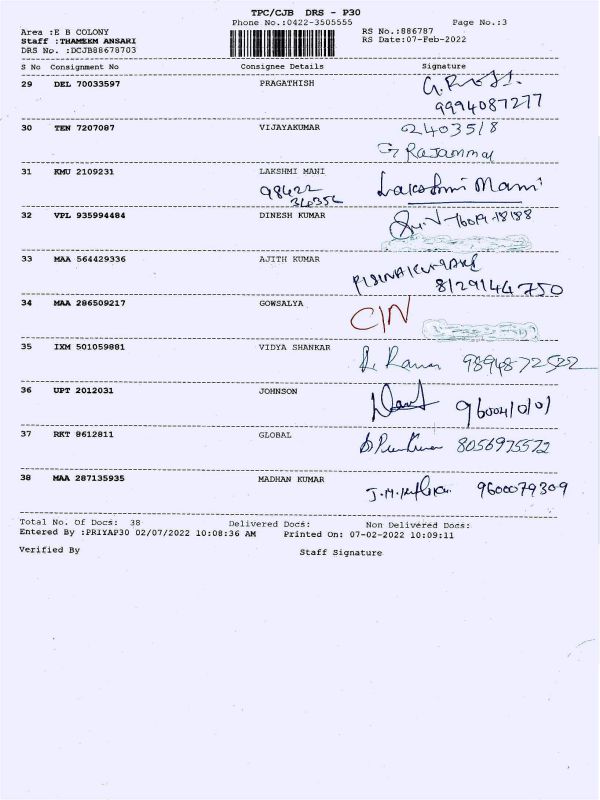 TPC/CJB DRS - P30
Phone No.:0422-3505555 Page No.:3
Area :E B COLONY RS No.:886787
Staff :THAMEEM ANSARI RS Date:07-Feb-2022
DRS No. :DCJB88678703
S No Consignment No Consignee Details Signature
29 DEL 70033597 PRAGATHISH
9994087277
30 TEN 7207087 VIJAYAKUMAR 24035/8
G Rajammal
31 KMU 2109231 LAKSHMI MANI Lakshmi Mani
98422
34035
32 VPL 935994484 DINESH KUMAR
33 MAA 564429336 AJITH KUMAR
8129144750
34 MAA 286509217 GOWSALYA C/N
35 IXM 501059881 VIDYA SHANKAR R. Raman
36 UPT 2012031 JOHNSON
9600410101
37 RKT 8612811 GLOBAL 8056975572
38 MAA 287135935 MADHAN KUMAR 9600079309
Total No. Of Docs: 38 Delivered Docs: Non Delivered Docs:
Entered By :PRIYAP30 02/07/2022 10:08:36 AM Printed On: 07-02-2022 10:09:11
Verified By Staff Signature